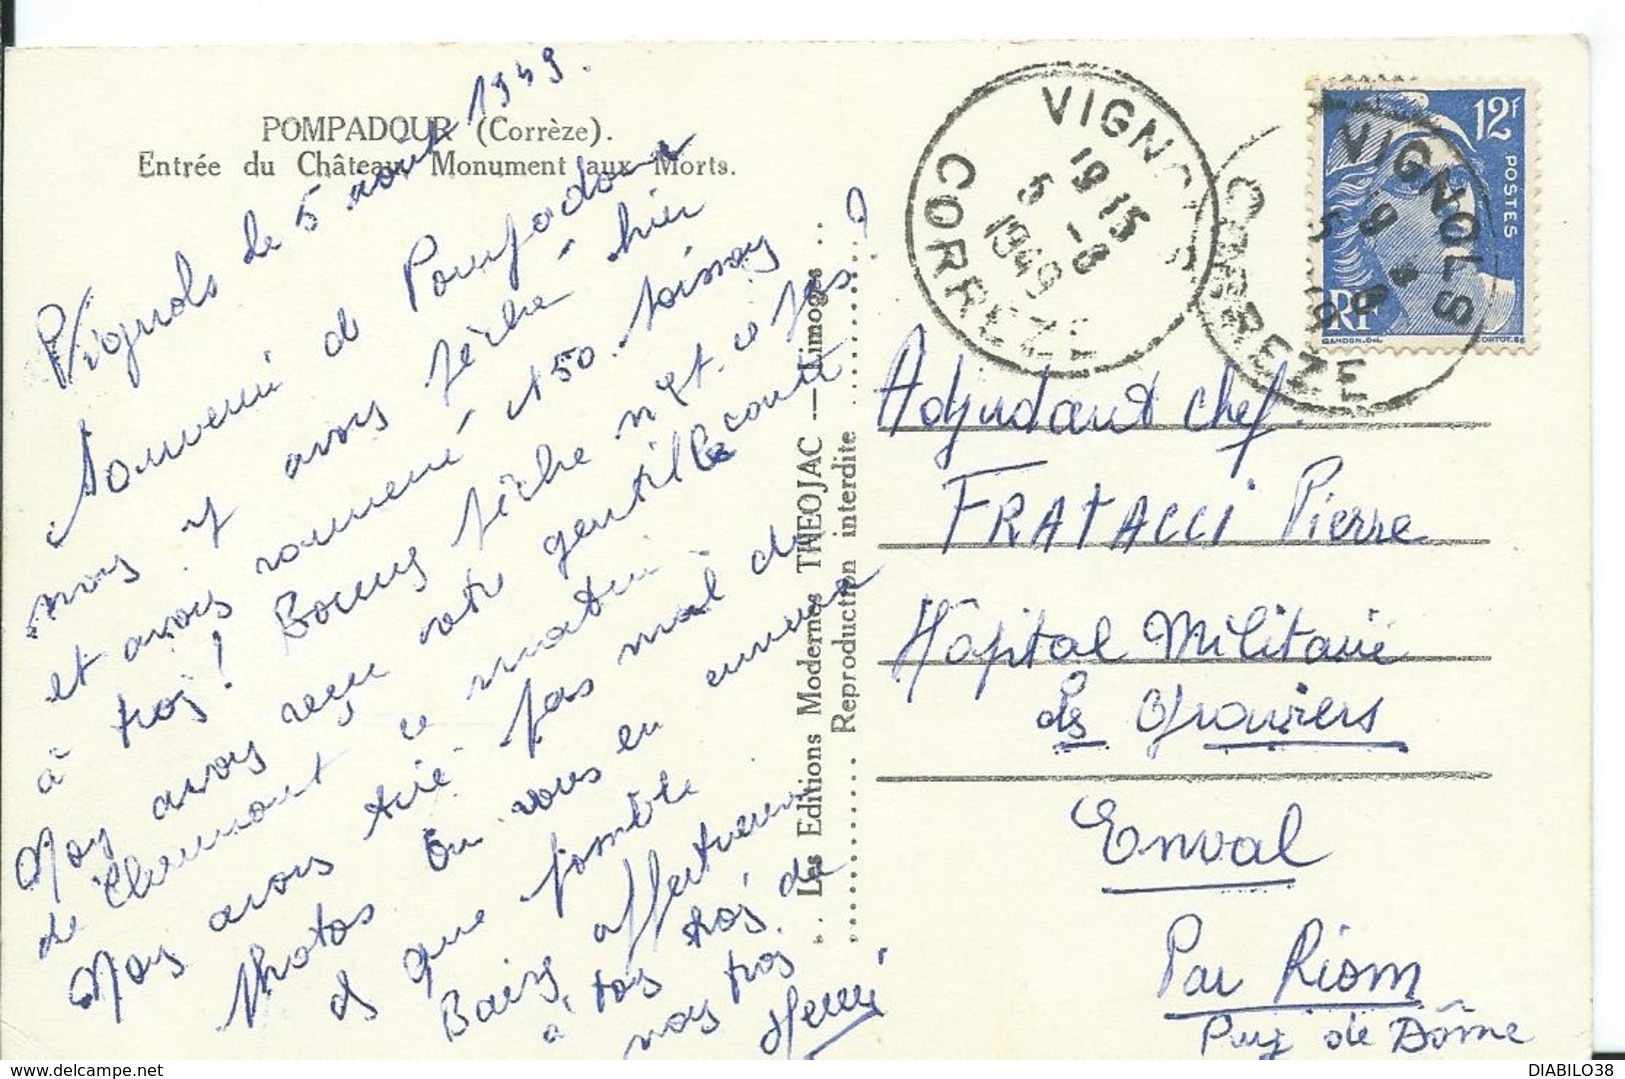 POMPADOUR (Corrèze).
Entrée du Château Monument aux Morts.
Vignols le 5 août 1949.
Souvenir de Pompadour
nous y avons pêché hier
et avons ramené 150 poissons
à trois! Bonne pêche n'est-ce pas?
Nous avons reçu votre gentille carte
de Clermont ce matin
Nous avons tiré pas mal de
photos. On vous en enverra
dès que possible
Baisers affectueux
à tous trois de
nous trois
Henri
.. Les Editions Modernes THEOJAC — Limoges ..
Reproduction interdite
VIGNOLS
19 15
5 -8
1949
CORREZE
VIGNOLS
CORREZE
12F
POSTES
RF
GANDON.DEL
CORTOT.SC
Adjudant chef.
FRATACCI Pierre
Hôpital Militaire
des Graviers
Enval
Par Riom
Puy de Dôme
DIABILO38